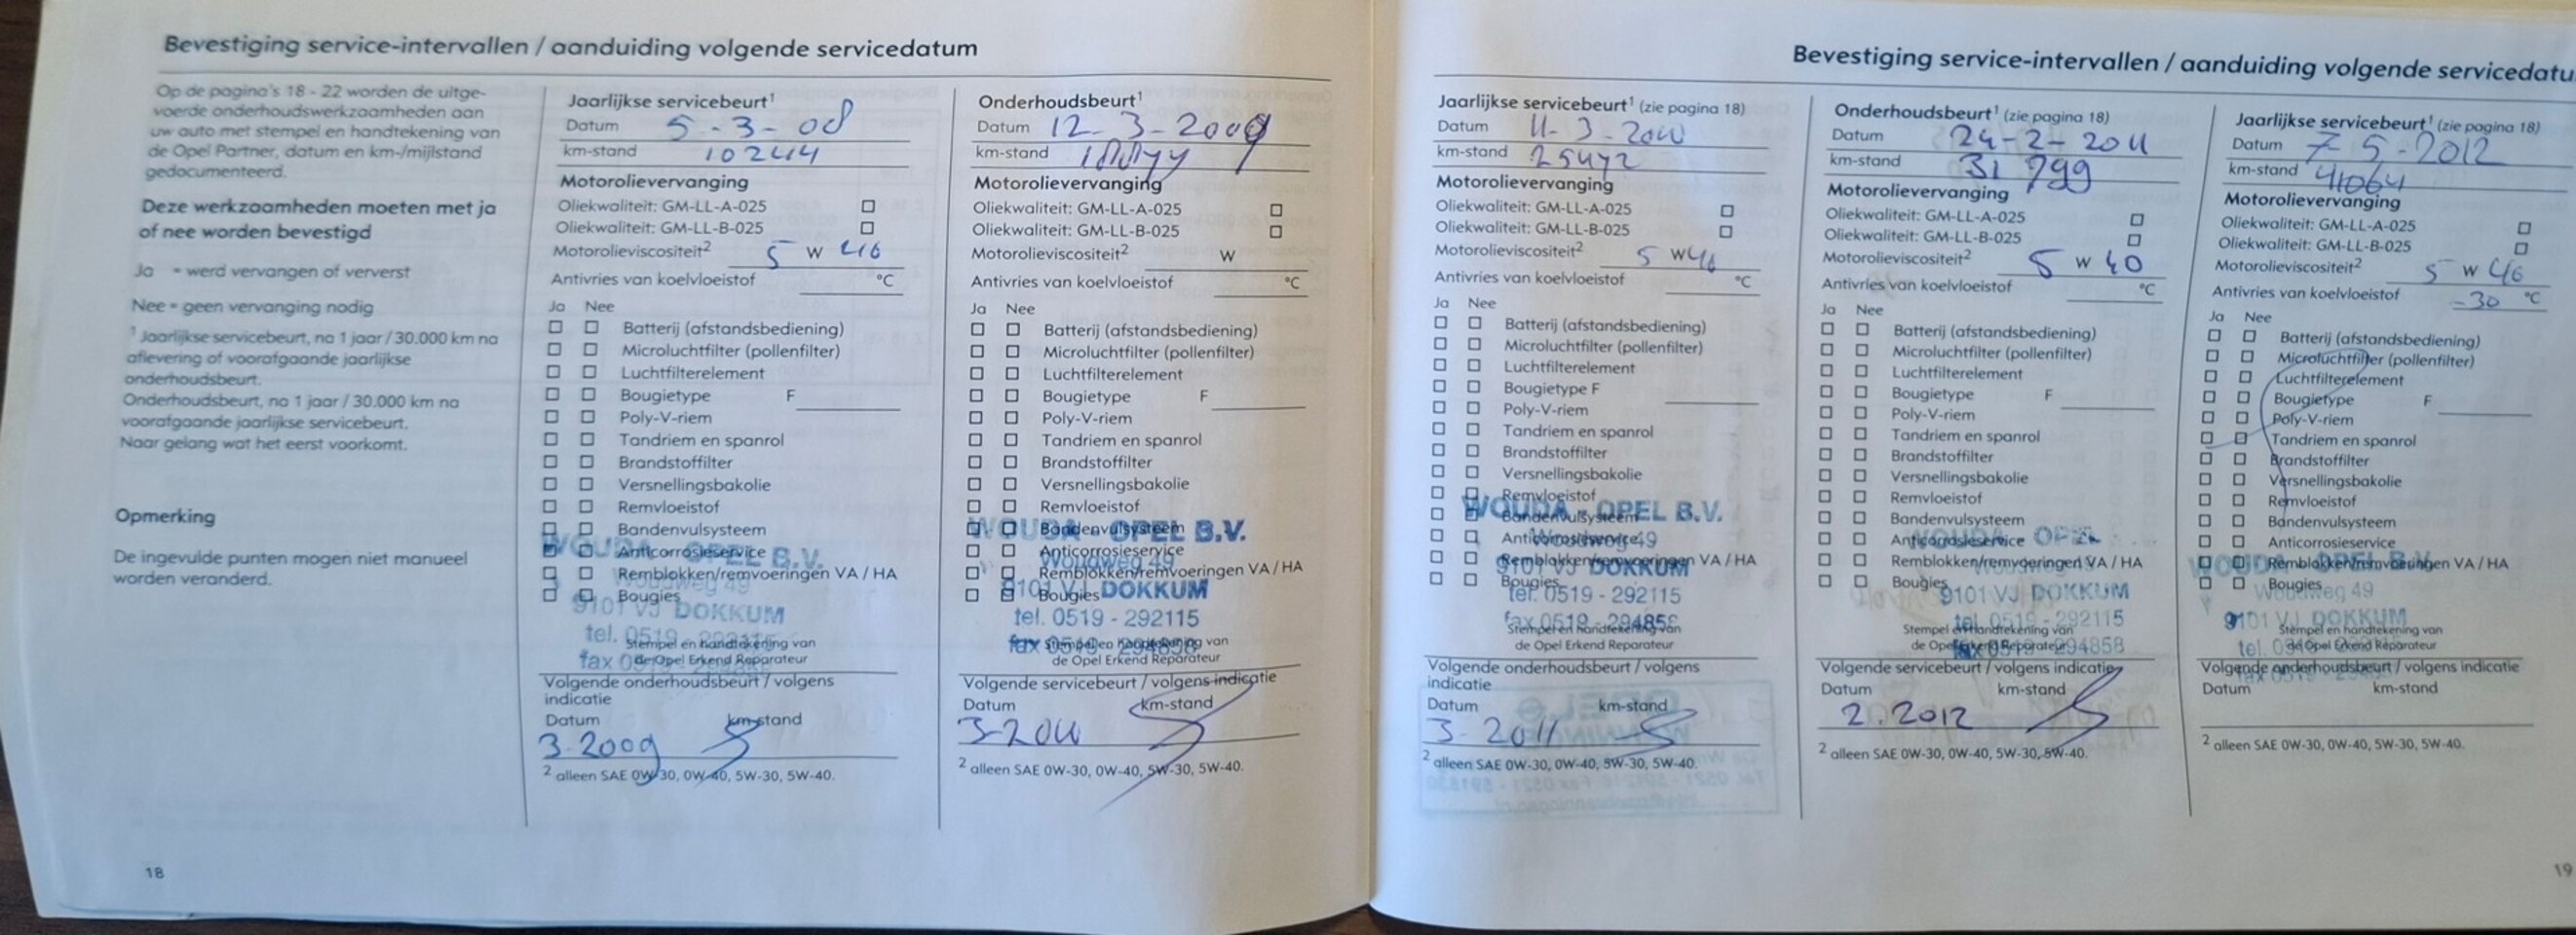 Bevestiging service-intervallen / aanduiding volgende servicedatum
Op de pagina's 18 - 22 worden de uitge-
voerde onderhoudswerkzaamheden aan
uw auto met stempel en handtekening van
de Opel Partner, datum en km-/mijlstand
gedocumenteerd.
Deze werkzaamheden moeten met ja
of nee worden bevestigd
Ja = werd vervangen of ververst
Nee = geen vervanging nodig
1 Jaarlijkse servicebeurt, na 1 jaar / 30.000 km na
aflevering of voorafgaande jaarlijkse
onderhoudsbeurt.
Onderhoudsbeurt, na 1 jaar / 30.000 km na
voorafgaande jaarlijkse servicebeurt.
Naar gelang wat het eerst voorkomt.
Opmerking
De ingevulde punten mogen niet manueel
worden veranderd.
18
Jaarlijkse servicebeurt1
Datum 5-3-08
km-stand 10244
Motorolievervanging
Oliekwaliteit: GM-LL-A-025
Oliekwaliteit: GM-LL-B-025
Motorolieviscositeit2 5 W 40
Antivries van koelvloeistof °C
Ja Nee
Batterij (afstandsbediening)
Microluchtfilter (pollenfilter)
Luchtfilterelement
Bougietype F
Poly-V-riem
Tandriem en spanrol
Brandstoffilter
Versnellingsbakolie
Remvloeistof
Bandenvulsysteem
Anticorrosieservice
WOUDA - OPEL B.V.
Remblokken/remvoeringen VA / HA
Woudweg 49
Bougies
9101 VJ DOKKUM
tel. 0519 - 292115
Stempel en handtekening van
de Opel Erkend Reparateur
Volgende onderhoudsbeurt / volgens
indicatie
Datum km-stand
3-2009
2 alleen SAE 0W-30, 0W-40, 5W-30, 5W-40.
Onderhoudsbeurt1
Datum 12-3-2009
km-stand
Motorolievervanging
Oliekwaliteit: GM-LL-A-025
Oliekwaliteit: GM-LL-B-025
Motorolieviscositeit2 W
Antivries van koelvloeistof °C
Ja Nee
Batterij (afstandsbediening)
Microluchtfilter (pollenfilter)
Luchtfilterelement
Bougietype F
Poly-V-riem
Tandriem en spanrol
Brandstoffilter
Versnellingsbakolie
Remvloeistof
Bandenvulsysteem
WOUDA - OPEL B.V.
Anticorrosieservice
Woudweg 49
Remblokken/remvoeringen VA / HA
Bougies
9101 VJ DOKKUM
tel. 0519 - 292115
fax 0519 - 294858
Stempel en handtekening van
de Opel Erkend Reparateur
Volgende servicebeurt / volgens indicatie
Datum km-stand
3-2010
2 alleen SAE 0W-30, 0W-40, 5W-30, 5W-40.
Bevestiging service-intervallen / aanduiding volgende servicedatu
Jaarlijkse servicebeurt1 (zie pagina 18)
Datum 11-3-2010
km-stand 25472
Motorolievervanging
Oliekwaliteit: GM-LL-A-025
Oliekwaliteit: GM-LL-B-025
Motorolieviscositeit2 5 W 40
Antivries van koelvloeistof °C
Ja Nee
Batterij (afstandsbediening)
Microluchtfilter (pollenfilter)
Luchtfilterelement
Bougietype F
Poly-V-riem
Tandriem en spanrol
Brandstoffilter
Versnellingsbakolie
Remvloeistof
WOUDA - OPEL B.V.
Bandenvulsysteem
Anticorrosieservice
Woudweg 49
Remblokken/remvoeringen VA / HA
9101 VJ DOKKUM
Bougies
tel. 0519 - 292115
fax 0519 - 294858
Stempel en handtekening van
de Opel Erkend Reparateur
Volgende onderhoudsbeurt / volgens
indicatie
Datum km-stand
3-2011
2 alleen SAE 0W-30, 0W-40, 5W-30, 5W-40.
Onderhoudsbeurt1 (zie pagina 18)
Datum 24-2-2011
km-stand 31799
Motorolievervanging
Oliekwaliteit: GM-LL-A-025
Oliekwaliteit: GM-LL-B-025
Motorolieviscositeit2 5 W 40
Antivries van koelvloeistof °C
Ja Nee
Batterij (afstandsbediening)
Microluchtfilter (pollenfilter)
Luchtfilterelement
Bougietype F
Poly-V-riem
Tandriem en spanrol
Brandstoffilter
Versnellingsbakolie
Remvloeistof
Bandenvulsysteem
Anticorrosieservice
WOUDA OPEL
Remblokken/remvoeringen VA / HA
Bougies
9101 VJ DOKKUM
tel. 0519 - 292115
Stempel en handtekening van
fax 0519 - 294858
de Opel Erkend Reparateur
Volgende servicebeurt / volgens indicatie
Datum km-stand
2.2012
2 alleen SAE 0W-30, 0W-40, 5W-30, 5W-40.
Jaarlijkse servicebeurt1 (zie pagina 18)
Datum 7-5-2012
km-stand 41064
Motorolievervanging
Oliekwaliteit: GM-LL-A-025
Oliekwaliteit: GM-LL-B-025
Motorolieviscositeit2 5 W 40
Antivries van koelvloeistof -30 °C
Ja Nee
Batterij (afstandsbediening)
Microluchtfilter (pollenfilter)
Luchtfilterelement
Bougietype F
Poly-V-riem
Tandriem en spanrol
Brandstoffilter
Versnellingsbakolie
Remvloeistof
Bandenvulsysteem
Anticorrosieservice
Remblokken/remvoeringen VA / HA
WOUDA - OPEL B.V.
Bougies
Woudweg 49
9101 VJ DOKKUM
Stempel en handtekening van
de Opel Erkend Reparateur
Volgende onderhoudsbeurt / volgens indicatie
Datum km-stand
2 alleen SAE 0W-30, 0W-40, 5W-30, 5W-40.
19